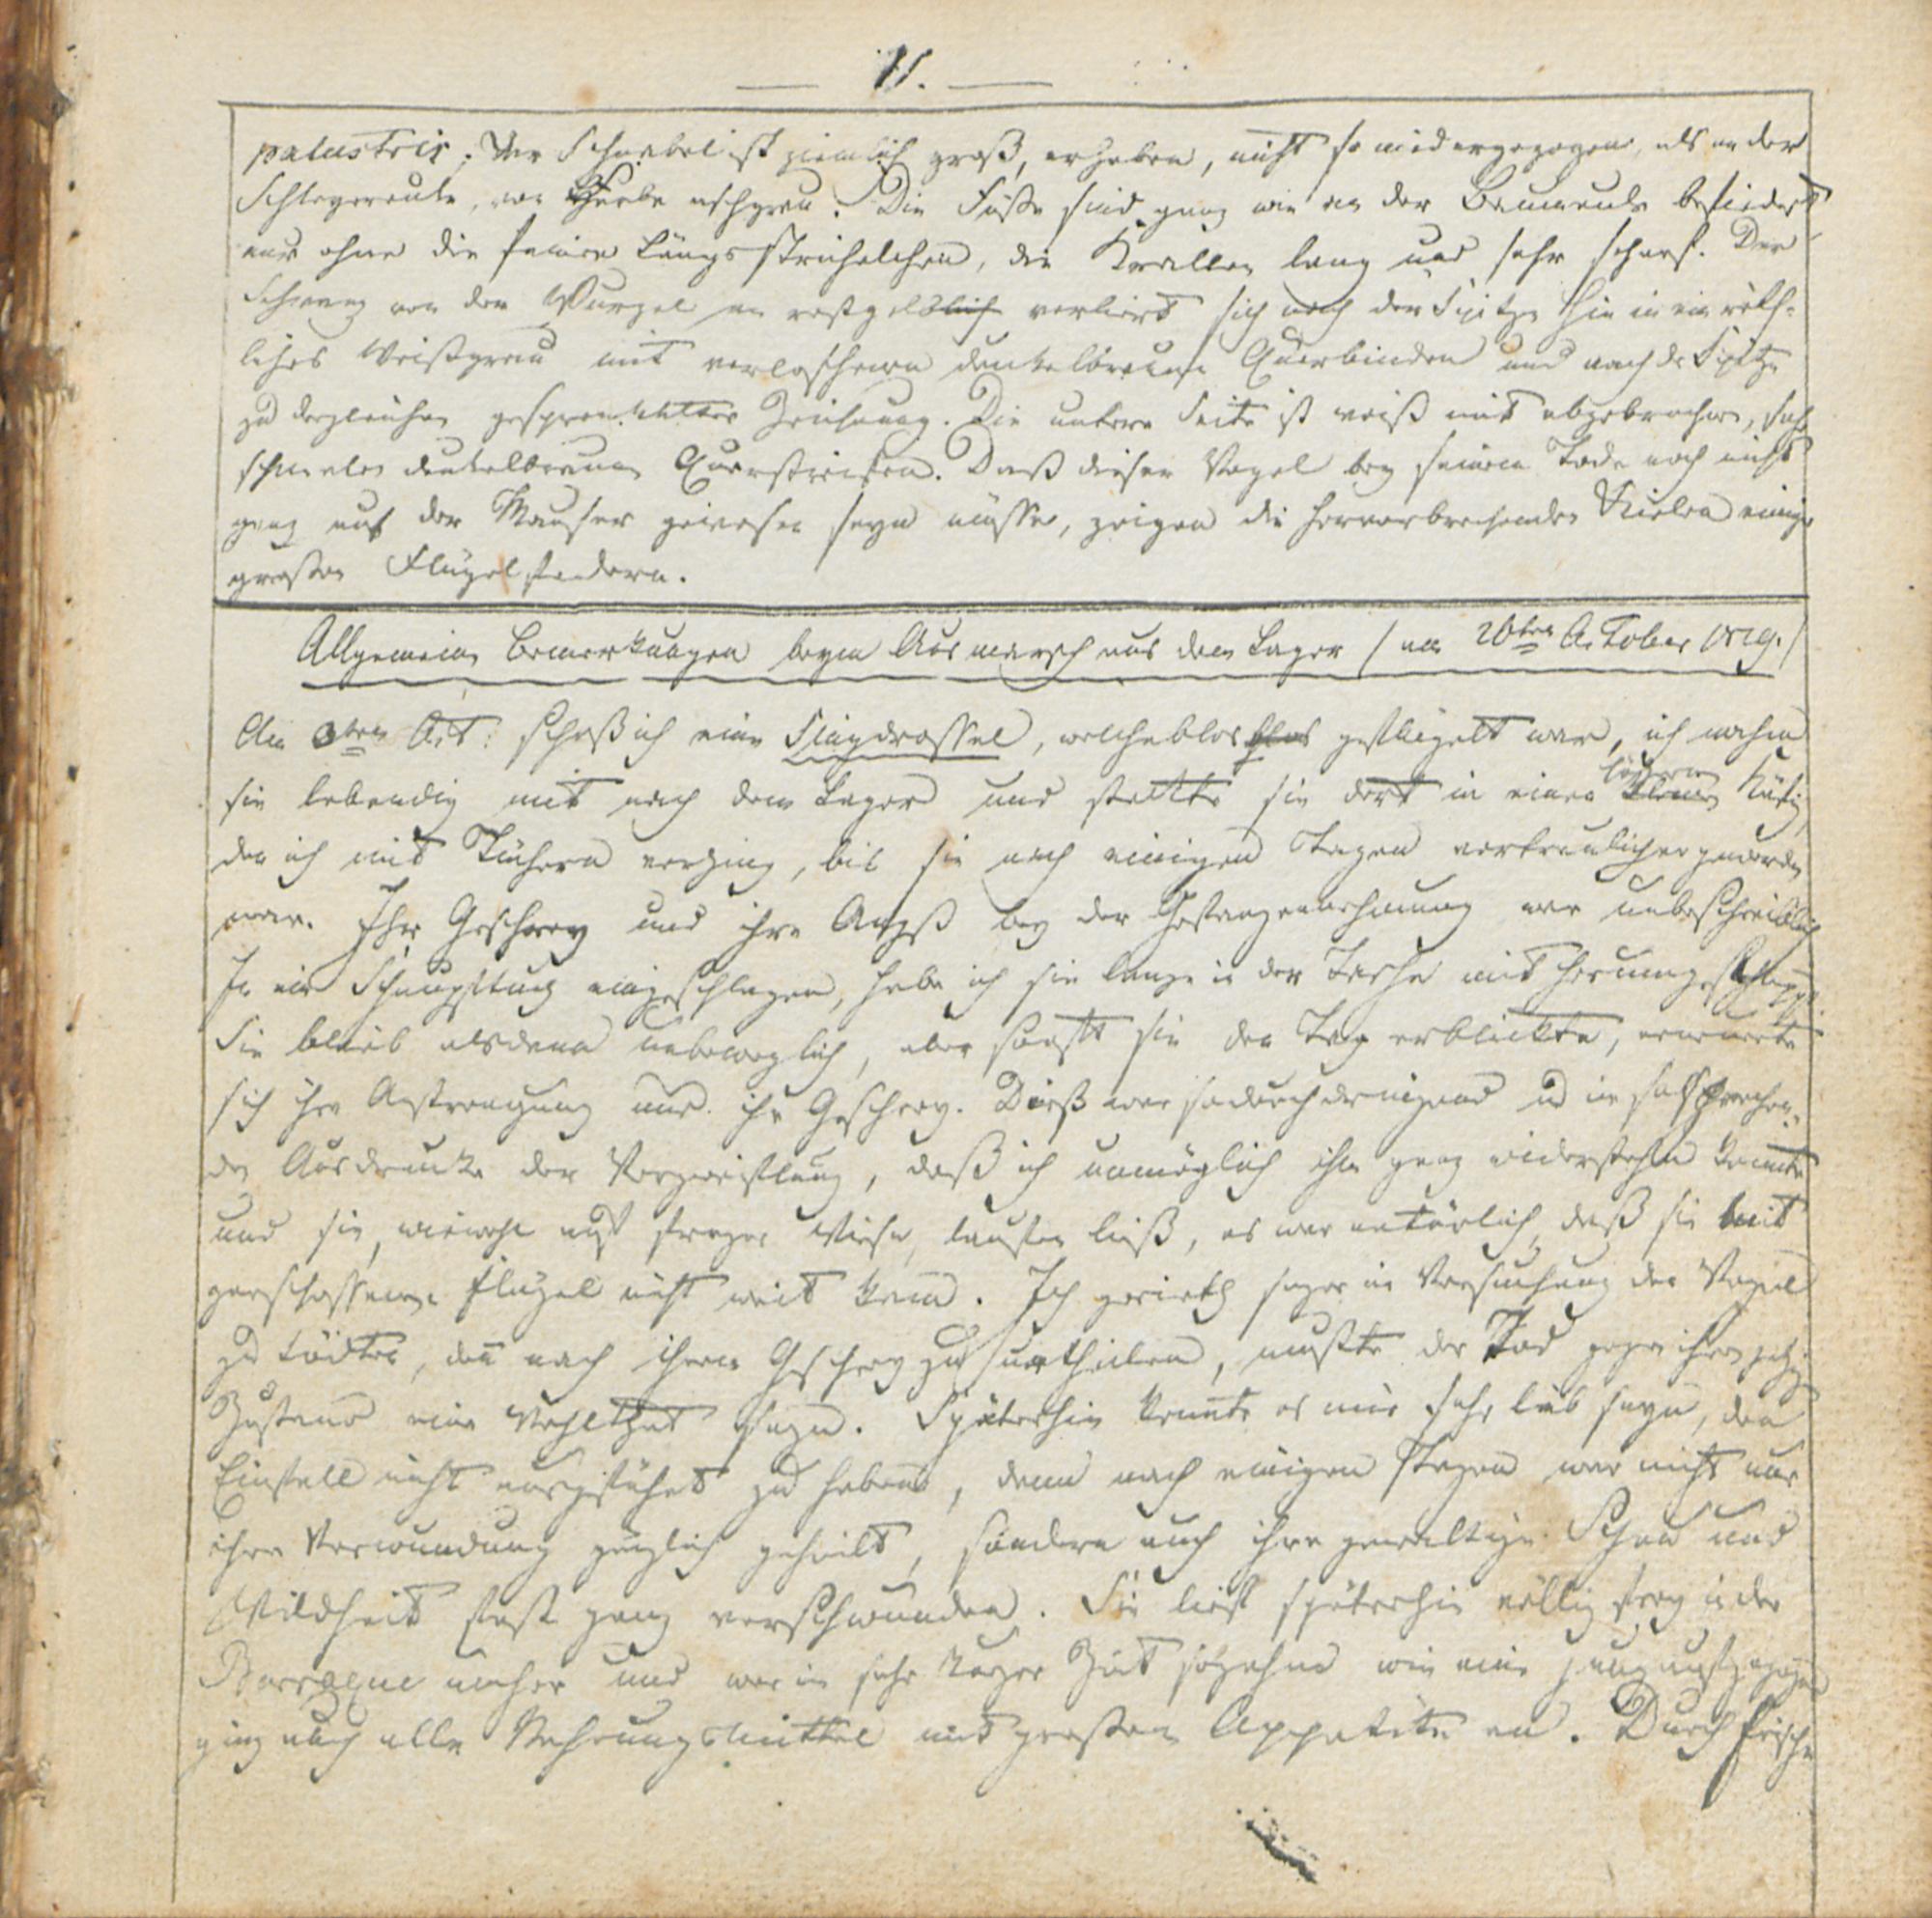 — 11. —
palustris. Der Schnabel ist ziemlich groß, erhaben, nicht so niedergezogen, als an der
Schleyereule, von Farbe aschgrau. Die Füße sind ganz wie an der Baumeule befiedert
nur ohne die feinen Längsstrichelchen, die Krallen lang und sehr scharf. Der
Schwanz von der Wurzel an rostgelblich verliert sich nach der Spitze hin in ein röth-
liches Weißgrau mit verloschenen dunkelbraunen Querbinden und nach der Spitze
zu dergleichen gesprenkelter Zeichnung. Die untere Seite ist weiß mit abgebrochen, sehr
schmalen dunkelbraunen Querstreifen. Daß dieser Vogel bey seinem Tode noch nicht
ganz aus der Mauser gewesen seyn müsse, zeigen die hervorbrechenden Kielen einiger
großen Flügelfedern.
Allgemeine Bemerkungen beym Ausmarsch aus dem Lager / am 20ten October 1819. /
Am 3ten Oct: schoß ich eine Singdrossel, welche blos geflügelt war, ich nahm
sie lebendig mit nach dem Lager und steckte sie dort in einen kleinen Käfig,
den ich mit Tüchern verhing, bis sie nach einigen Tagen vertraulicher geworden
war. Ihr Geschrey und ihre Angst bey der Gefangennehmung war unbeschreiblich
In ein Schnupftuch eingeschlagen, habe ich sie lange in der Tasche mit herumgeschleppt.
Sie blieb alsdann unbeweglich, aber sowie sie den Tag erblickte, erneuerte
sich ihre Anstrengung und ihr Geschrey. Dieß war so durchdringend und im so sprechen-
den Ausdrucke der Verzweiflung, daß ich unmöglich ihm ganz widerstehen konnte
und sie, wiewohl auf freyer Wiese, laufen ließ, es war natürlich, daß sie mit
zerschossenem Flügel nicht weit kam. Ich gerieth sogar in Versuchung den Vogel
zu tödten, denn nach ihrem Geschrey zu urtheilen, mußte der Tod gegen ihren jetzigen
Zustand eine Wohlthat seyn. Späterhin konnte es mir sehr lieb seyn, den
Einfall nicht ausgeführt zu haben, denn nach einigen Tagen war nicht nur
ihre Verwundung gänzlich geheilt, sondern auch ihre gewaltige Scheu und
Wildheit fast ganz verschwunden. Sie lief späterhin völlig frey in der
Barraque umher und war in sehr kurzer Zeit so zahm wie eine jung aufgezogene
ging auch alle Nahrungsmittel mit großem Appetite an. Durch frische